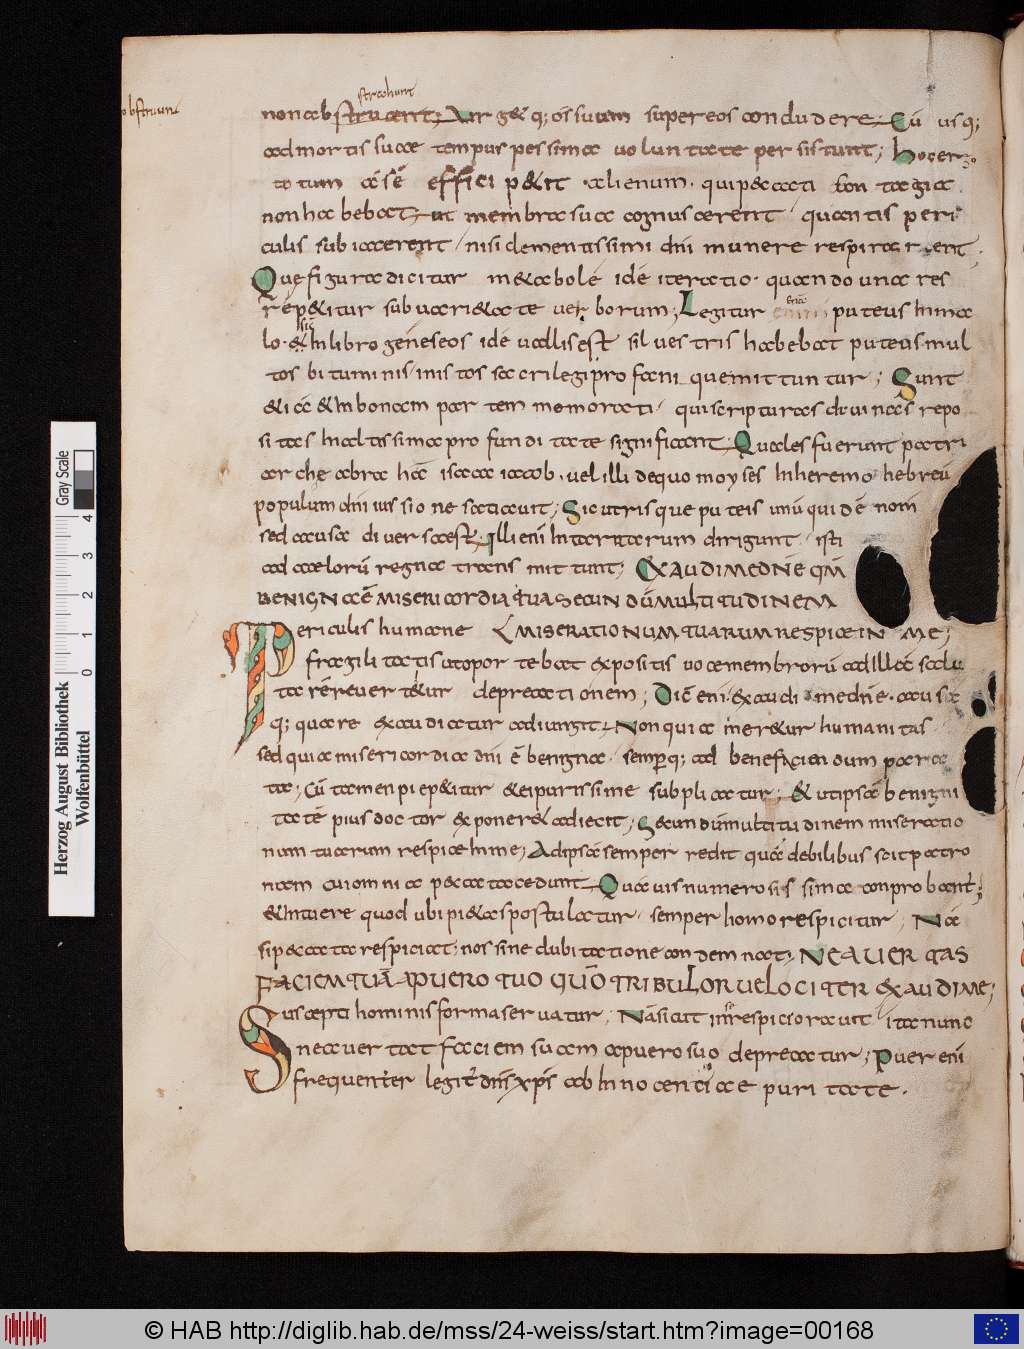 strahunt
obstruunt
non abstruant; Vrg& q; os suum super eos concludere; Cū usq;
ad mortis suae tempus pessima uoluntate persistunt; hoc er
totum a sē effici p&it alienum · qui p&acti contagia
non habebat; ut membra sua cognuscerent quantis peri
culis subiacerent / nisi clementissimi dn̄i munere respirarent ·
Que figura dicitur m&abolé idē iteratio · quando una res
rep&itur sub uari&ate uerborum; Legitur puteus in ma
lo · & in libro geneseos idē uallis est siluestris habebat puteus mul
tos bituminis in istos sacrilegi profani quem ittuntur; Sunt
&iā & in bonam partem memorati · qui scripturas diuinas repo
sitas in altissima profunditate significant; Quales fuerunt patri
arche abrahā isaac iacob · uel illi de quo moyses in heremo hebreū
populum dn̄i iussione satiauit; Sic utrisque puteis unū quidē nom̄
sed causa diuersa est; Illi enī in tartarum dirigunt · isti
ad caelorū regna transmittunt; EXAUDI ME DN̄E QM̄
BENIGNA Ē MISERICORDIA TUA SECUNDŪ MULTITUDINEM
Periculis humane MISERATIONUM TUARUM RESPICE IN ME;
fragilitatis ut oportebat expositis uoce membrorū ad illā sa
ta reuertitur deprecationem; Dic̄ enī exaudi me dn̄e · causa
q; quare exaudiatur adiungit; Non quia mer&ur humanitas
sed quia misericordia dn̄i ē benigna · semperq; ad beneficiendum para
ta; Cū tamen pie p&itur &e ipurissime subplicatur; & ut ipsā benigni
tatē pius doctor exponer& adiecit; Secundū multitudinem miseratio
num tuarum respice in me; Ad ipsā semper redit quā debilibus scit patro
nam cui omnia p&cata cedunt; Quā uis numerosis sima conprobant;
& intuere quod ubi pi&as postulatur · semper homo respicitur; Nā
si p&cata respiciat · nos sine dubitatione condemnat; NE AUERTAS
FACIEM TUĀ A PUERO TUO QUŌ TRIBULOR UELOCITER EXAUDI ME;
Suscepti hominis forma seruatur; Nā sicut in re spicio rauit ita nunc
ne auertat faciem suam a puero suo deprecatur; Puer enī
frequenter legit dn̄s xp̄s ab innocentiae puritate ·
Herzog August Bibliothek
Wolfenbüttel
Gray Scale
0 1 2 3 4
© HAB http://diglib.hab.de/mss/24-weiss/start.htm?image=00168